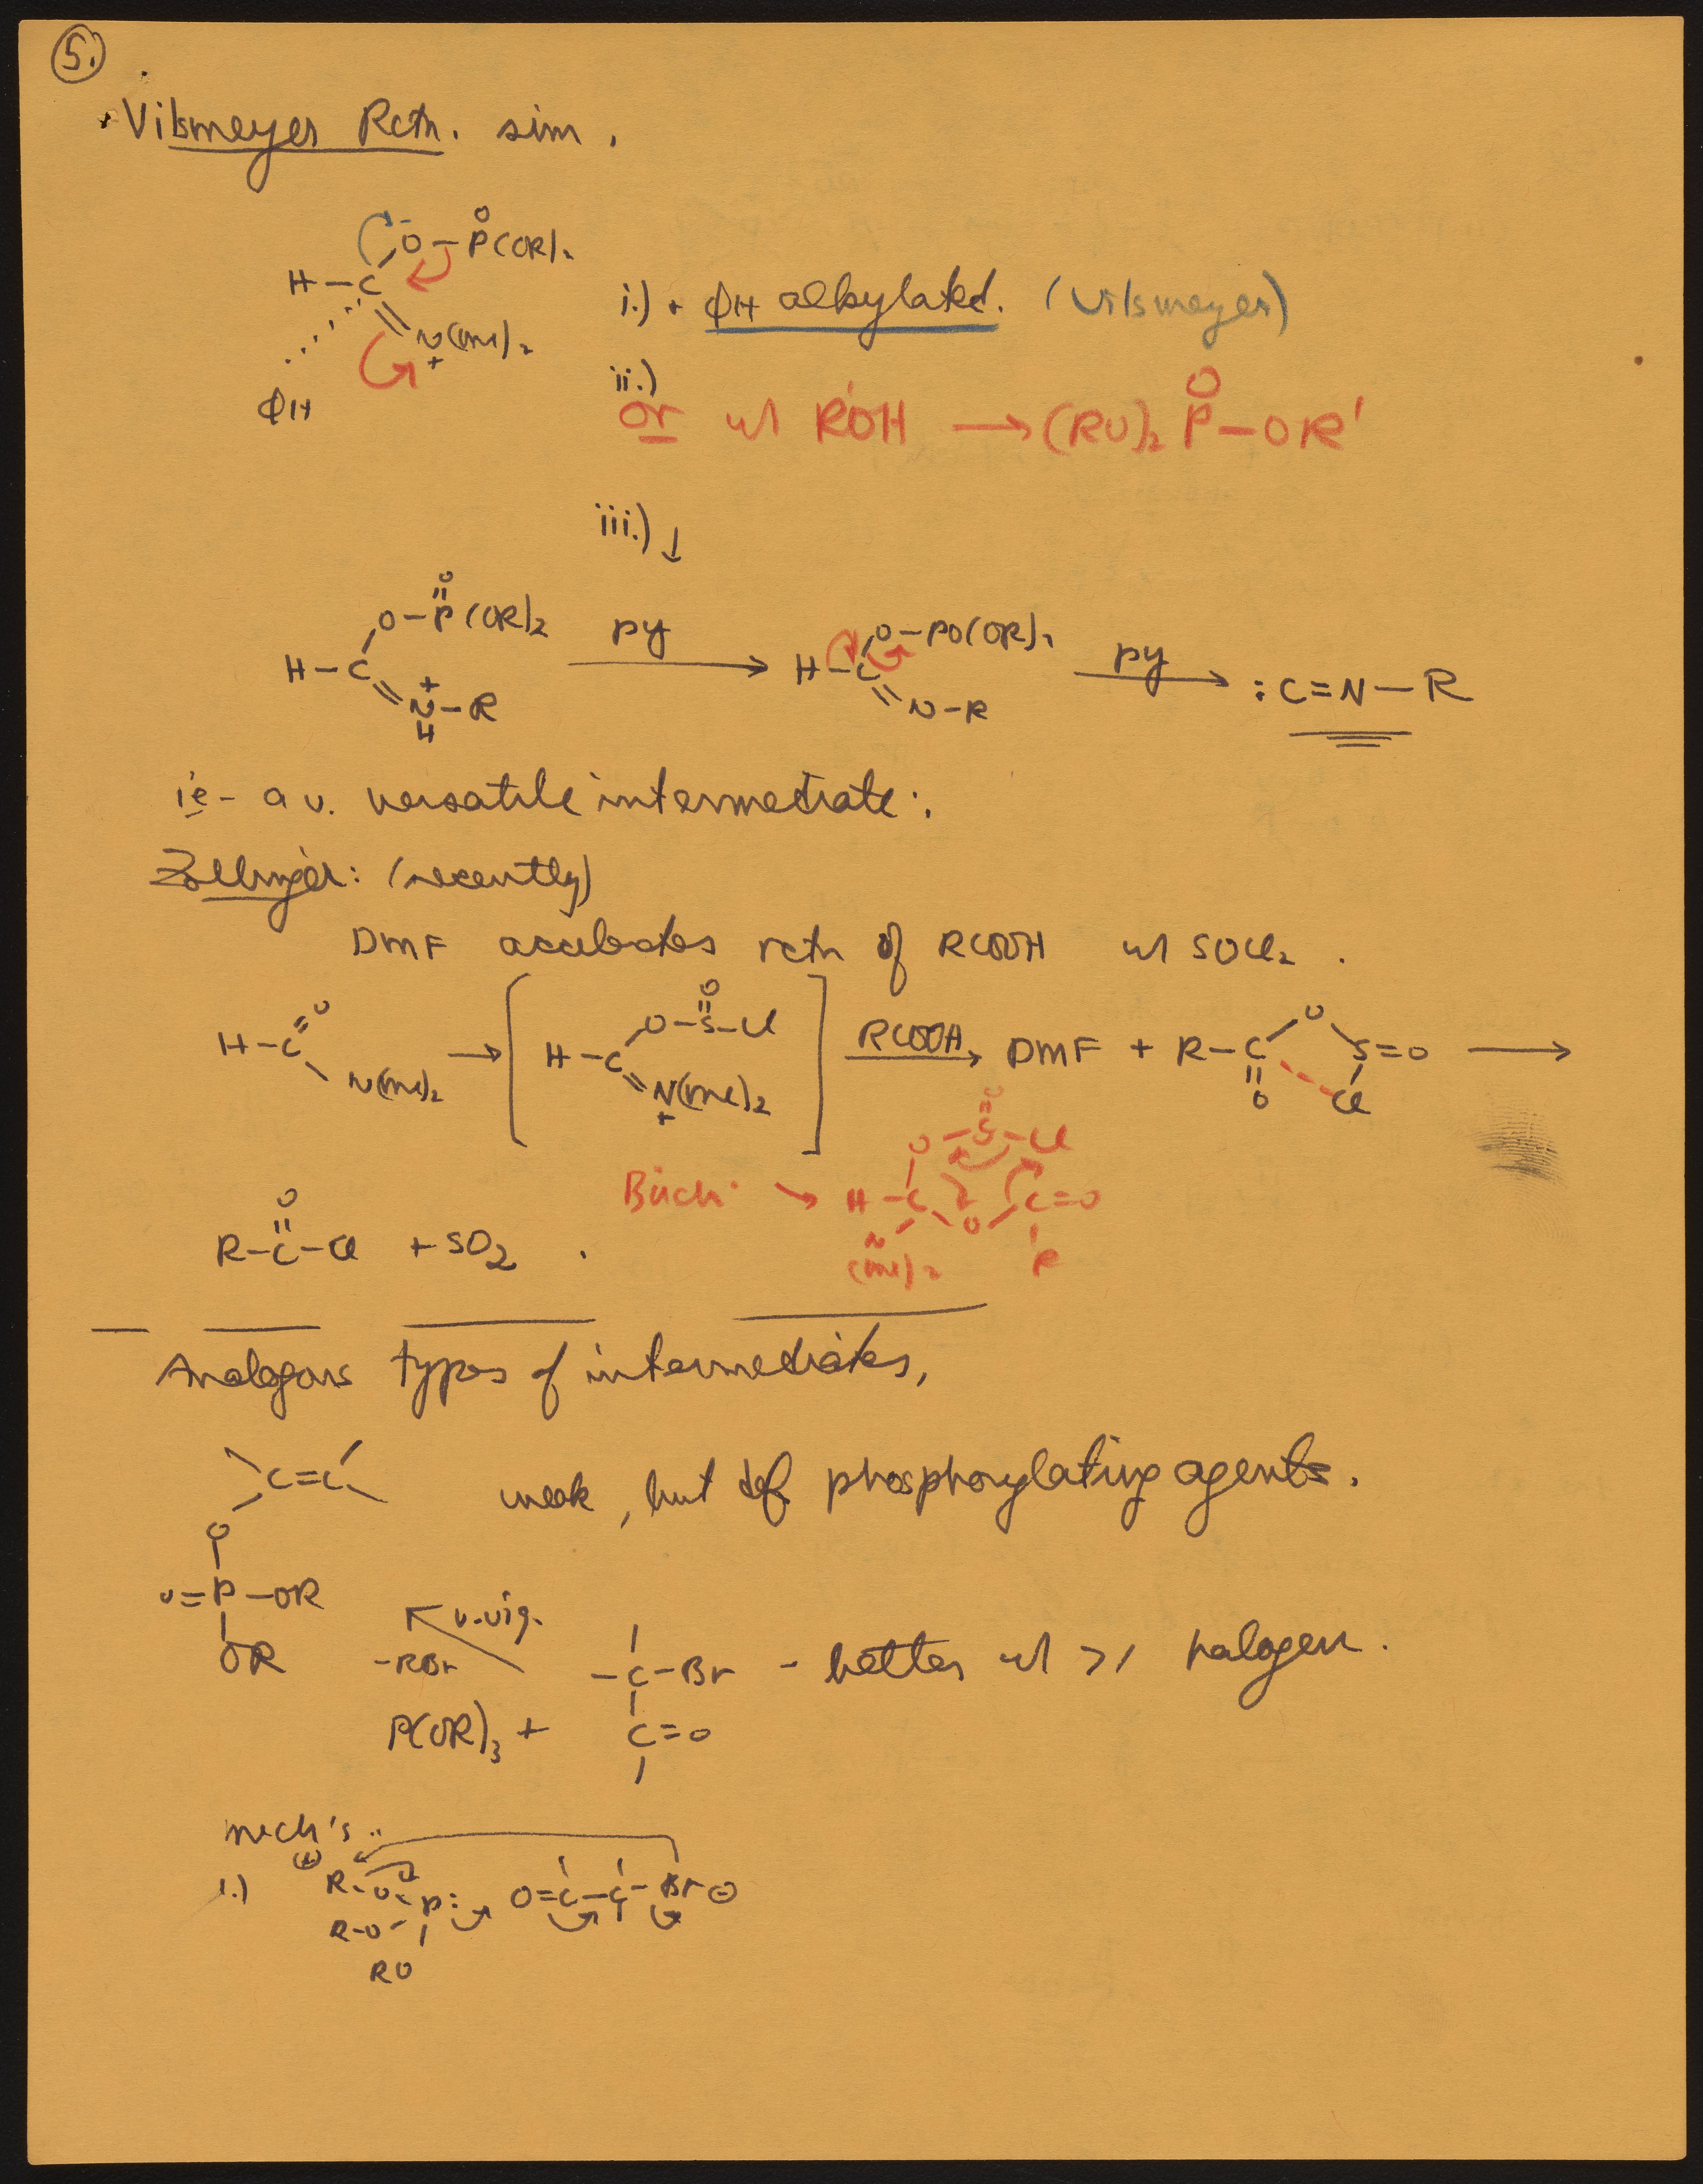 5.
Vilsmeyer Rctn. sim.
O
O–P(OR)2
H–C
N(Me)2
+
ΦH
i.) + ΦH alkylated. (Vilsmeyer)
ii.)
or w/ R'OH → (RO)2 P–OR'
O
iii.) ↓
O
O–P(OR)2
H–C
+
N–R
H
py
O–PO(OR)2
H–C
N–R
py
:C=N–R
ie – a v. versatile intermediate:
Zollinger: (recently)
DMF accelerates rctn of RCOOH w/ SOCl2.
O
H–C
N(Me)2
→
O
O–S–Cl
H–C
N(Me)2
+
RCOOH
DMF + R–C
O
O
S=O
Cl
→
O
R–C–Cl + SO2.
Büchi → H–C
O–S–Cl
O
O
C=O
N
(Me)2
R
Analogous types of intermediates,
C=C
weak, but def phosphorylating agents.
O
O=P–OR
OR
v. vig.
–RBr
–C–Br – better w/ >1 halogen.
P(OR)3 +
C=O
mech's..
1.)
(+)
R–O–P:
R–O
RO
O=C–C–Br ⊖